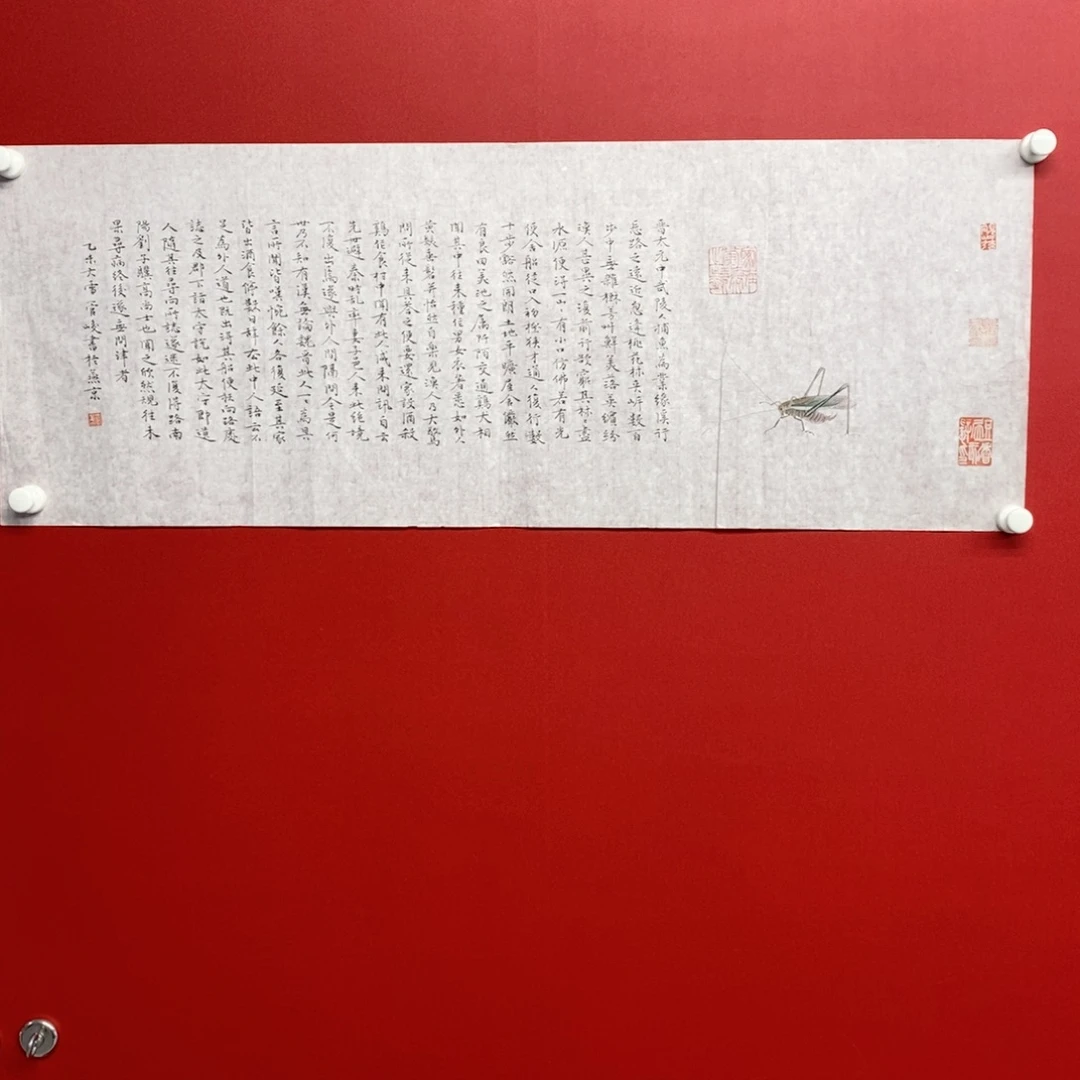 晋太元中武陵人捕魚為業緣溪行
忘路之遠近忽逢桃花林夾岸數百
步中無雜樹芳草鮮美落英繽紛
漁人甚異之復前行欲窮其林〻盡
水源便得一山〻有小口仿佛若有光
便舍船從口入初極狹才通人復行數
十步豁然開朗土地平曠屋舍儼然
有良田美池之屬阡陌交通鷄犬相
聞其中往來種作男女衣著悉如外人
黃髮垂髫并怡然自樂見漁人乃大驚
問所從來具答之便要還家設酒殺
鷄作食村中聞有此人咸來問訊自云
先世避秦時乱率妻子邑人来此絕境
不復出焉遂與外人間隔問今是何
世乃不知有漢無論魏晉此人一〻為具
言所聞皆嘆惋餘人各復延至其家
皆出酒食停數日辭去此中人語云不
足為外人道也既出得其船便扶向路處
誌之及郡下詣太守說如此太守即遣
人隨其往尋向所誌遂迷不復得路南
陽劉子驥高尚士也聞之欣然規往未
果尋病終後遂無問津者
乙未大雪 書於燕京